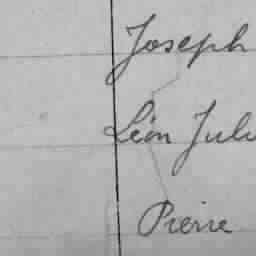 Joseph
Léon Jule
Pierre